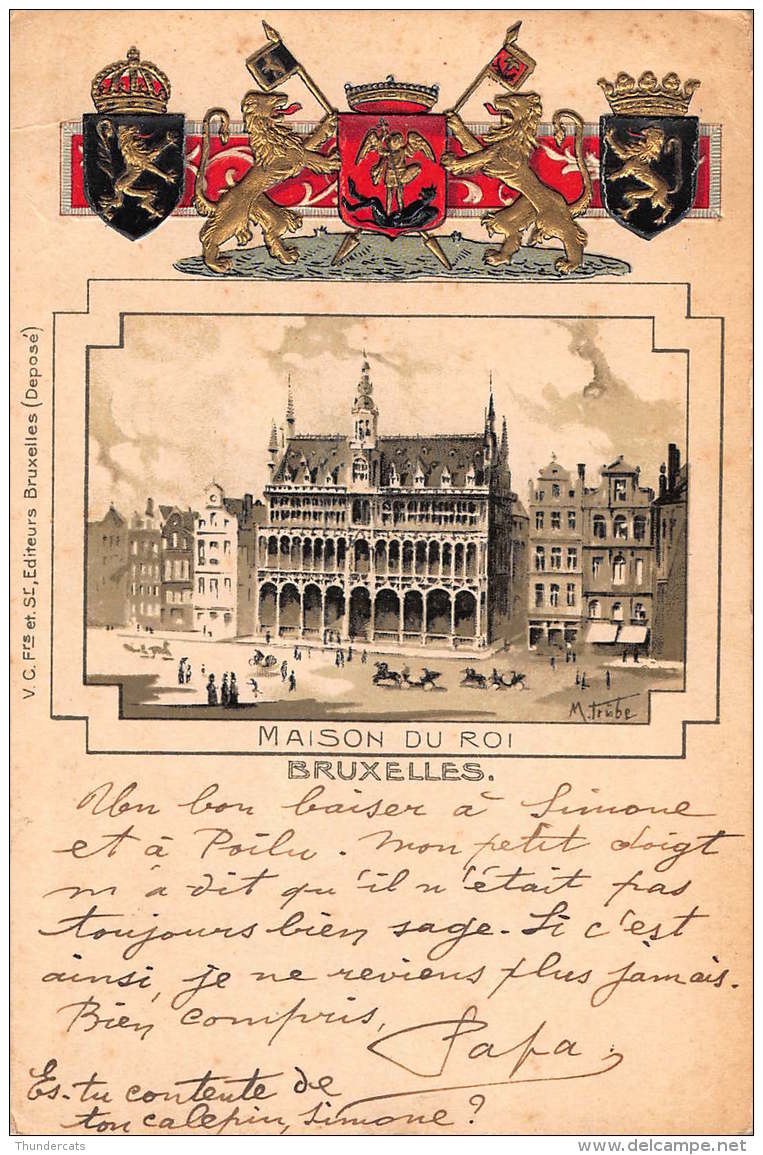 V. C. Frs et. Sr, Editeurs Bruxelles (Deposé)
M. Trübe
MAISON DU ROI
BRUXELLES.
Un bon baiser à Simone
et à Poilu. Mon petit doigt
m'a dit qu'il n'était pas
toujours bien sage. Si c'est
ainsi, je ne reviens plus jamais.
Bien compris,
Papa
Es-tu contente de
ton calepin, Simone?
Thundercats
delcampe.net